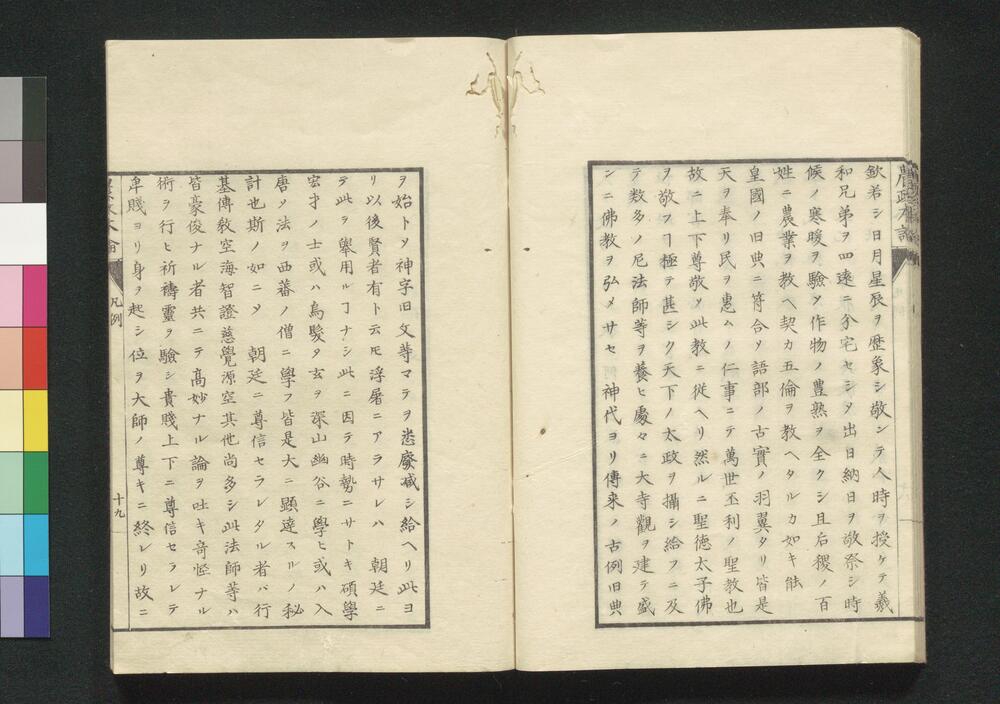 欽若シ日月星辰ヲ歴象シ敬ンテ人時ヲ授ケテ羲
和兄弟ヲ四遠ニ分宅セシメ出日納日ヲ敬祭シ時
候ノ寒暖ヲ驗メ作物ノ豊熟ヲ全クシ且后稷ノ百
姓ニ農業ヲ教ヘ契カ五倫ヲ教ヘタルカ如キ能
皇國ノ旧典ニ符合メ語部ノ古實ノ羽翼タリ皆是
天ヲ奉リ民ヲ惠ムノ仁事ニテ萬世丕利ノ聖教也
故ニ上下尊敬メ此教ニ從ヘリ然ルニ聖徳太子佛
ヲ敬フヿ極テ甚シク天下ノ太政ヲ攝シ給フニ及
テ数多ノ尼法師等ヲ養ヒ處々ニ大寺觀ヲ建テ盛
ンニ佛教ヲ弘メサセ 神代ヨリ傳来ノ古例旧典
ヲ始トメ神字旧文等マテヲ悉廢滅シ給ヘリ此ヨ
リ以後賢者有ト云モ浮屠ニアラサレハ 朝廷ニ
テ此ヲ舉用ルヿナシ此ニ因テ時勢ニサトキ碩學
宏才ノ士或ハ烏髪タ玄ヲ深山幽谷ニ學ヒ或ハ入
唐メ法ヲ西蕃ノ僧ニ學フ皆是大ニ顕達スルノ秘
計也斯ノ如ニメ 朝廷ニ尊信セラレタル者ハ行
基傳教空海智證慈覺源空其他尚多シ此法師等ハ
皆豪俊ナル者共ニテ高妙ナル論ヲ吐キ奇怪ナル
術ヲ行ヒ祈禱靈ヲ驗シ貴賤上下ニ尊信セラレテ
卑賤ヨリ身ヲ起シ位ヲ大師ノ尊キニ終レリ故ニ
凡例
十九